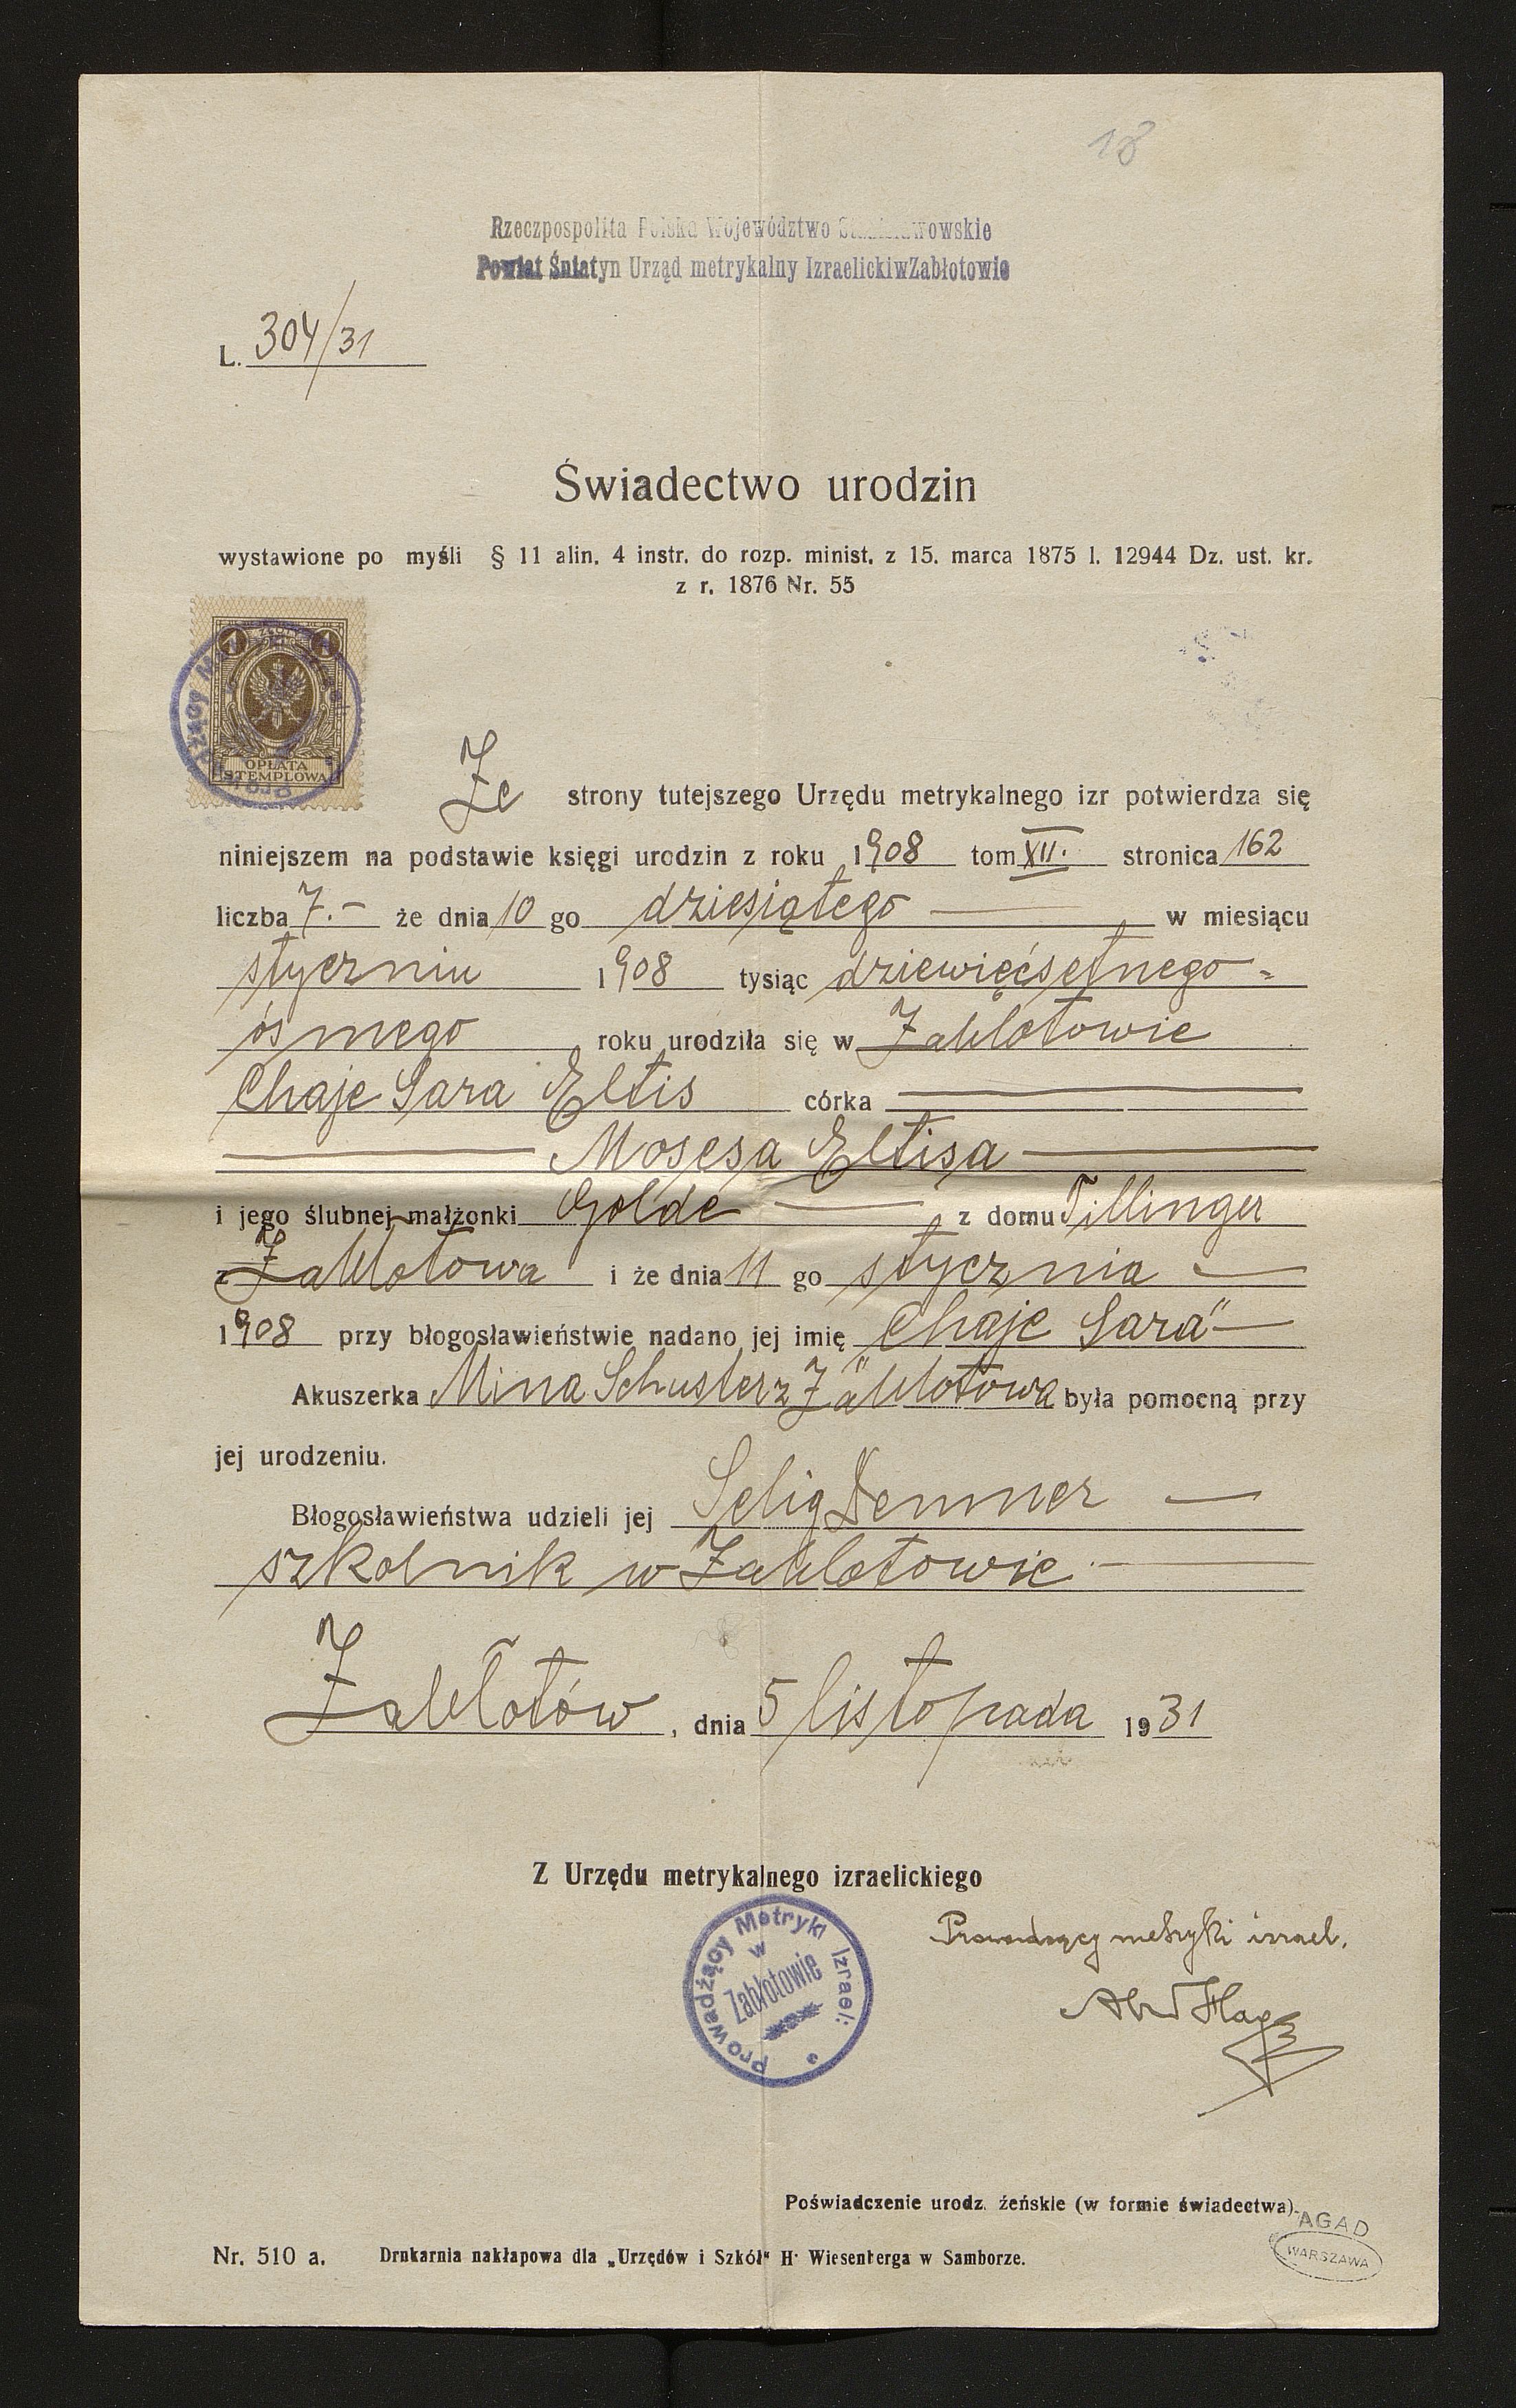 18
Rzeczpospolita Polska Województwo Stanisławowskie
Powiat Śniatyn Urząd metrykalny IzraelickiwZabłotowie
L. 304/31
Świadectwo urodzin
wystawione po myśli § 11 alin. 4 instr. do rozp. minist. z 15. marca 1875 l. 12944 Dz. ust. kr.
z r. 1876 Nr. 55
1 ZŁOTY 1
OPŁATA
STEMPLOWA
Ze strony tutejszego Urzędu metrykalnego izr potwierdza się
niniejszem na podstawie księgi urodzin z roku 1908 tom XII. stronica 162
liczba 7.— że dnia 10 go dziesiątego — w miesiącu
styczniu 1908 tysiąc dziewięćsetnego =
ósmego roku urodziła się w Zabłotowie
Chaje Sara Eltis córka —
— Mosesa Eltisa —
i jego ślubnej małżonki Golde — z domu Tillinger
z Zabłotowa i że dnia 11 go stycznia —
1908 przy błogosławieństwie nadano jej imię „Chaje Sara" —
Akuszerka Mina Schuster z Zabłotowa była pomocną przy
jej urodzeniu.
Błogosławieństwa udzieli jej Selig Demner —
szkolnik w Zabłotowie. —
Zabłotów, dnia 5 listopada 1931
Z Urzędu metrykalnego izraelickiego
Prowadzący Metryki Izrael:
w
Zabłotowie
Prowadzący metryki izrael.
Poświadczenie urodz. żeńskie (w formie świadectwa).
AGAD
WARSZAWA
Nr. 510 a. Drnkarnia nakłapowa dla „Urzędów i Szkół" H· Wiesenberga w Samborze.